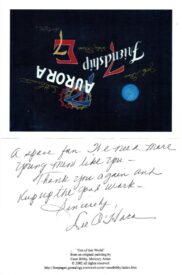 Friendship
7
AURORA
7
A space fan. We need more
young men like you –
Thank you again and
Keep up the good work –
Sincerely,
Dee O'Hara
"Out of this World"
from an original painting by
Cece Bibby, Mercury Artist
© 2002 all rights reserved